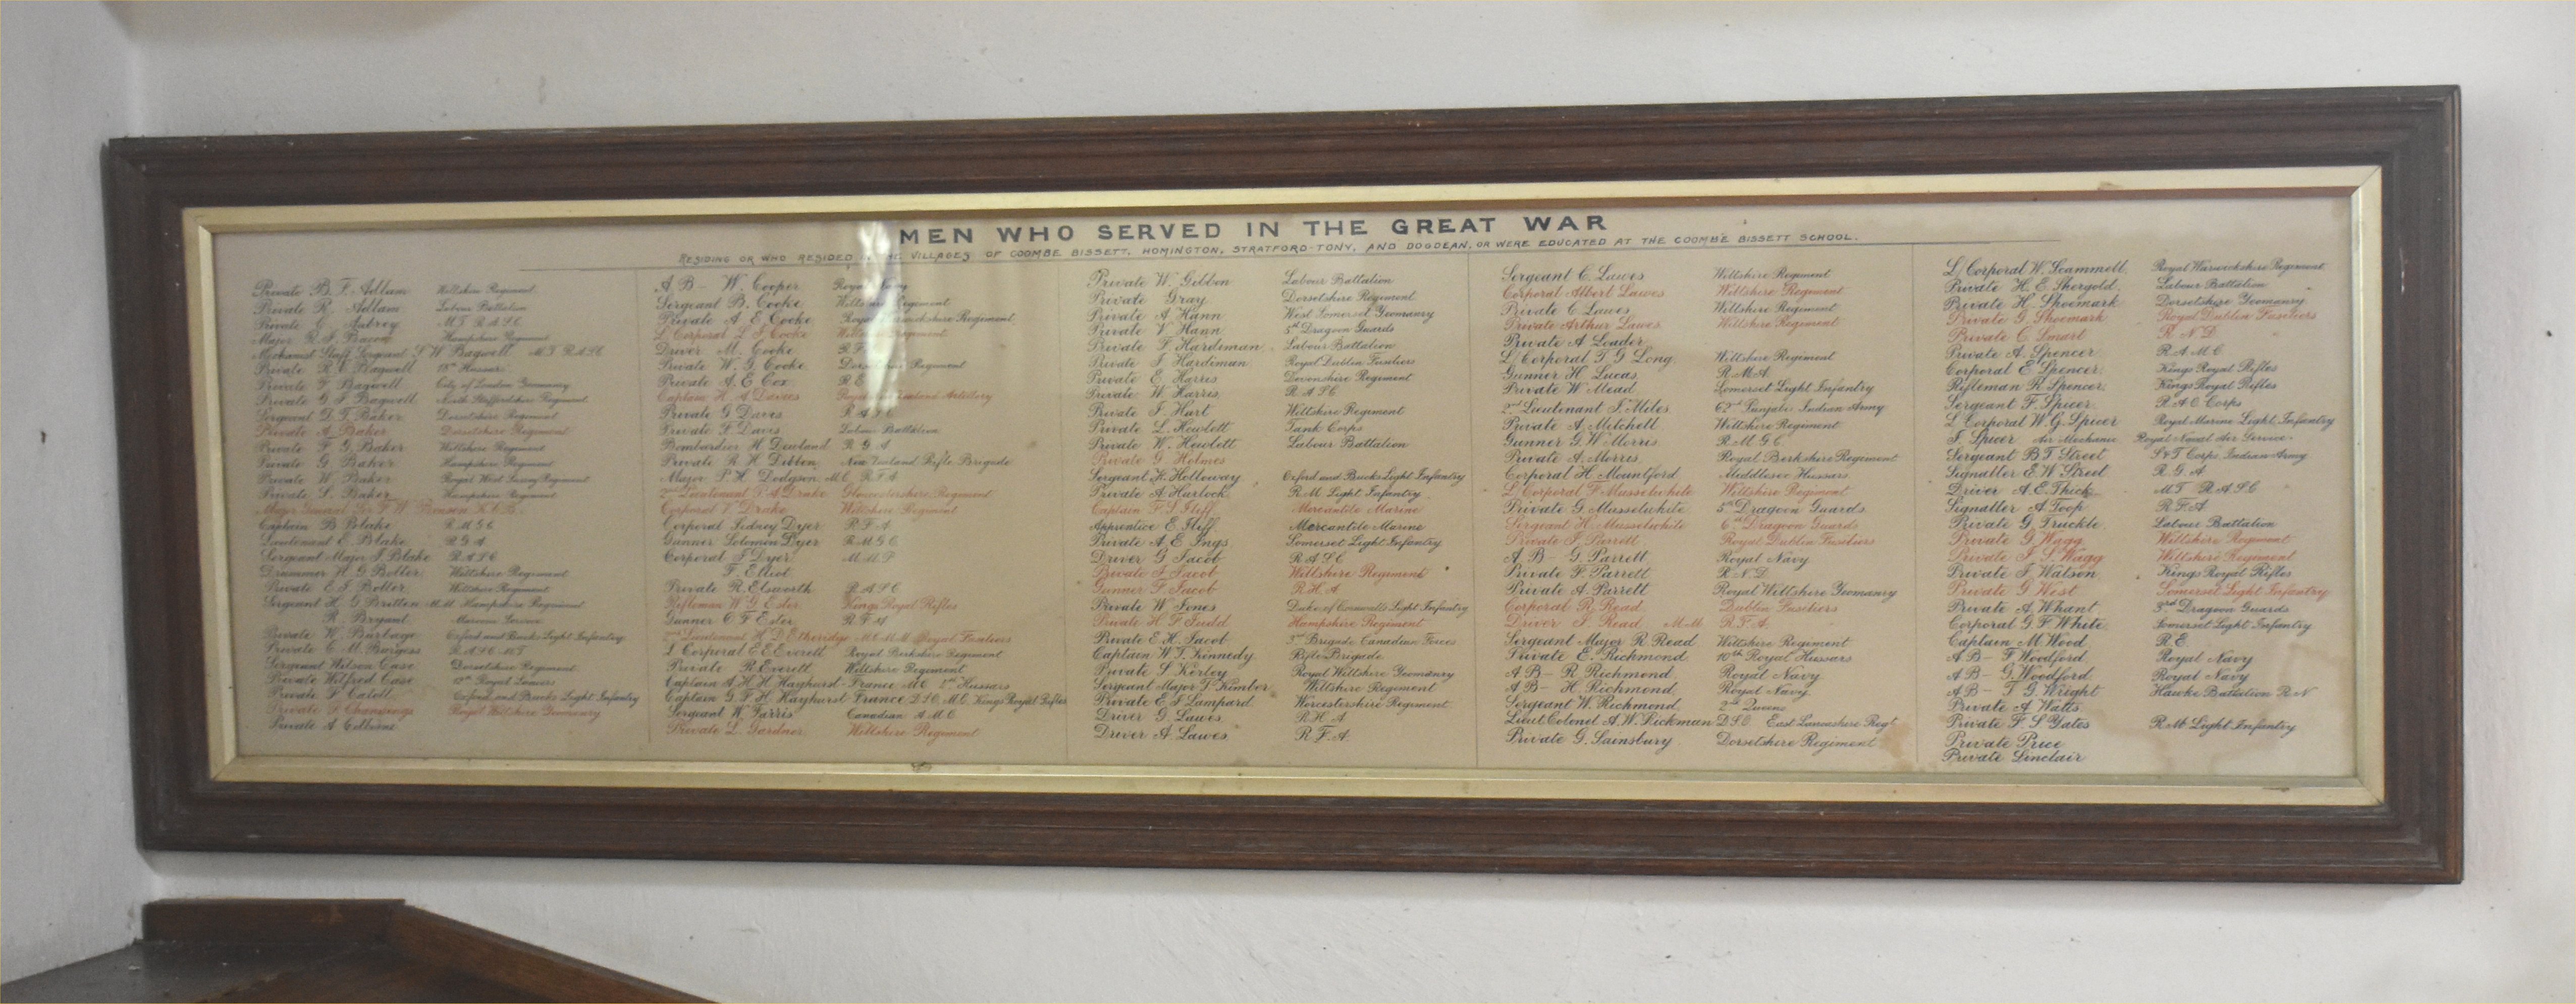 MEN WHO SERVED IN THE GREAT WAR
RESIDING OR WHO RESIDED IN THE VILLAGES OF COOMBE BISSETT, HOMINGTON, STRATFORD-TONY, AND DOGDEAN, OR WERE EDUCATED AT THE COOMBE BISSETT SCHOOL.
Private B. F. Adlam Wiltshire Regiment
Private R. Adlam Labour Battalion
Private E. Aubrey M.T. R.A.S.C.
Major Bacon Hampshire Regiment
Mechanist Staff Sergeant S. W. Bagwell M.T. R.A.S.C.
Private R. C. Bagwell 18th Hussars
Private F. Bagwell City of London Yeomanry
Private G. F. Bagwell North Staffordshire Regiment
Sergeant D. T. Baker Dorsetshire Regiment
Private A. Baker Dorsetshire Regiment
Private F. G. Baker Wiltshire Regiment
Private G. Baker Hampshire Regiment
Private W. Baker Royal West Surrey Regiment
Private S. Baker Hampshire Regiment
Major General Sir F. W. Benson K.C.B.
Captain B. Blake R.M.G.C.
Lieutenant E. Blake R.G.A.
Sergeant Major J. Blake R.A.S.C.
Drummer H. G. Bolter Wiltshire Regiment
Private E. J. Bolter Wiltshire Regiment
Sergeant H. G. Britten M.M. Hampshire Regiment
R. Bryant
Private W. Burbage Oxford and Bucks Light Infantry
Private C. M. Burgess R.A.S.C. M.T.
Sergeant Wilson Case Dorsetshire Regiment
Private Wilfred Case 12th Royal Lancers
Private F. Catell Oxford and Bucks Light Infantry
Private F. Chansings Royal Wiltshire Yeomanry
Private A. Collins
A B - W. Cooper Royal Navy
Sergeant B. Cooke Wiltshire Regiment
Private A. E. Cooke Royal Warwickshire Regiment
L/Corporal L. J. Cooke Wiltshire Regiment
Driver M. Cooke R.F.
Private W. G. Cooke Dorsetshire Regiment
Private A. E. Cox R.E.
Captain H. A. Davies Royal Artillery
Private G. Davis R.A.S.C.
Private F. Davis Labour Battalion
Bombardier H. Dewland R.G.A.
Private R. H. Dibben New Zealand Rifle Brigade
Major P. H. Dodgson M.C. R.F.A.
2nd Lieutenant P. A. Drake Gloucestershire Regiment
Corporal V. Drake Wiltshire Regiment
Corporal Sidney Dyer R.F.A.
Gunner Solomon Dyer R.M.G.C.
Corporal J. Dyer M.M.P.
F. Elliot
Private R. Elsworth R.A.S.C.
Rifleman W. G. Ester Kings Royal Rifles
Gunner C. F. Ester R.F.A.
2nd Lieutenant H. D. Etheridge M.C. M.M. Royal Fusiliers
L Corporal E E Everett Royal Berkshire Regiment
Private R. Everett Wiltshire Regiment
Captain A. H. H. Hayhurst-France M.C. 1st Hussars
Captain G. F. H. Hayhurst France D.S.O. M.C. Kings Royal Rifles
Sergeant W. Farris Canadian A.M.C.
Private L. Gardner Wiltshire Regiment
Private W. Gibbon Labour Battalion
Private Gray Dorsetshire Regiment
Private A. Hann West Somerset Yeomanry
Private V. Hann 5th Dragoon Guards
Private F. Hardiman Labour Battalion
Private J. Hardiman Royal Dublin Fusiliers
Private E. Harris Devonshire Regiment
Private W. Harris R.A.S.C.
Private J. Hart Wiltshire Regiment
Private L. Hewlett Tank Corps
Private W. Hewlett Labour Battalion
Private G. Holmes
Sergeant K. Holloway Oxford and Bucks Light Infantry
Private A. Horlock R.M. Light Infantry
Captain F. S. Iliff Mercantile Marine
Apprentice E. Iliff Mercantile Marine
Private A. E. Ings Somerset Light Infantry
Driver G. Jacob R.A.S.C.
Private J. Jacob Wiltshire Regiment
Gunner F. Jacob R.H.A.
Private W. Jones Duke of Cornwalls Light Infantry
Private H. F. Judd Hampshire Regiment
Private E. H. Jacob 3rd Brigade Canadian Forces
Captain W. T. Kennedy Rifle Brigade
Private S. Kerley Royal Wiltshire Yeomanry
Sergeant Major F. Kimber Wiltshire Regiment
Private E. J. Lampard Worcestershire Regiment
Driver G. Lawes R.H.A.
Driver A. Lawes R.F.A.
Sergeant C. Lawes Wiltshire Regiment
Corporal Albert Lawes Wiltshire Regiment
Private C. Lawes Wiltshire Regiment
Private Arthur Lawes Wiltshire Regiment
Private A. Loader
L/Corporal T. G. Long Wiltshire Regiment
Gunner H. Lucas R.M.A.
Private W. Mead Somerset Light Infantry
2nd Lieutenant J. Miles 62nd Punjabi Indian Army
Private A. Mitchell Wiltshire Regiment
Gunner G. W. Morris R.M.G.C.
Private A. Morris Royal Berkshire Regiment
Corporal H. Mountford Middlesex Hussars
L/Corporal F. Musselwhite Wiltshire Regiment
Private G. Musselwhite 5th Dragoon Guards
Sergeant H. Musselwhite 6th Dragoon Guards
Private J. Parrett Royal Dublin Fusiliers
A B - G. Parrett Royal Navy
Private P. Parrett R.N.D.
Private A. Parrett Royal Wiltshire Yeomanry
Corporal R. Read Dublin Fusiliers
Driver J. Read M.M. R.F.A.
Sergeant Major R. Read Wiltshire Regiment
Private E. Richmond 10th Royal Hussars
A B - R Richmond Royal Navy
A B - H. Richmond Royal Navy
Sergeant W. Richmond 2nd Queens
Lieut Colonel A. W. Rickman D.S.O. East Lancashire Regt
Private G. Sainsbury Dorsetshire Regiment
L/Corporal W. Scammell Royal Warwickshire Regiment
Private H. E. Shergold Labour Battalion
Private H. Shoemark Dorsetshire Yeomanry
Private G. Shoemark Royal Dublin Fusiliers
Private C. Smart R.N.D.
Private A. Spencer R.A.M.C.
Corporal E. Spencer Kings Royal Rifles
Rifleman R. Spencer Kings Royal Rifles
Sergeant F. Spicer R.A.O. Corps
L Corporal W. G. Spicer Royal Marine Light Infantry
J. Spicer Air Mechanic Royal Naval Air Service
Sergeant B. T. Street S & T Corps, Indian Army
Signaller E. W. Street R.G.A.
Driver A. E. Thick M.T. R.A.S.C.
Signaller A. Toop R.F.A.
Private G. Truckle Labour Battalion
Private G. Wagg Wiltshire Regiment
Private J. S. Wagg Wiltshire Regiment
Private J. Watson Kings Royal Rifles
Private G. West Somerset Light Infantry
Private A. Whant 3rd Dragoon Guards
Corporal G. F. White Somerset Light Infantry
Captain M. Wood R.E.
A B - F. Woodford Royal Navy
A B - G. Woodford Royal Navy
A B - T. G. Wright Hawke Battalion R.N.
Private A. Watts
Private F. S. Yates R.M. Light Infantry
Private Price
Private Sinclair